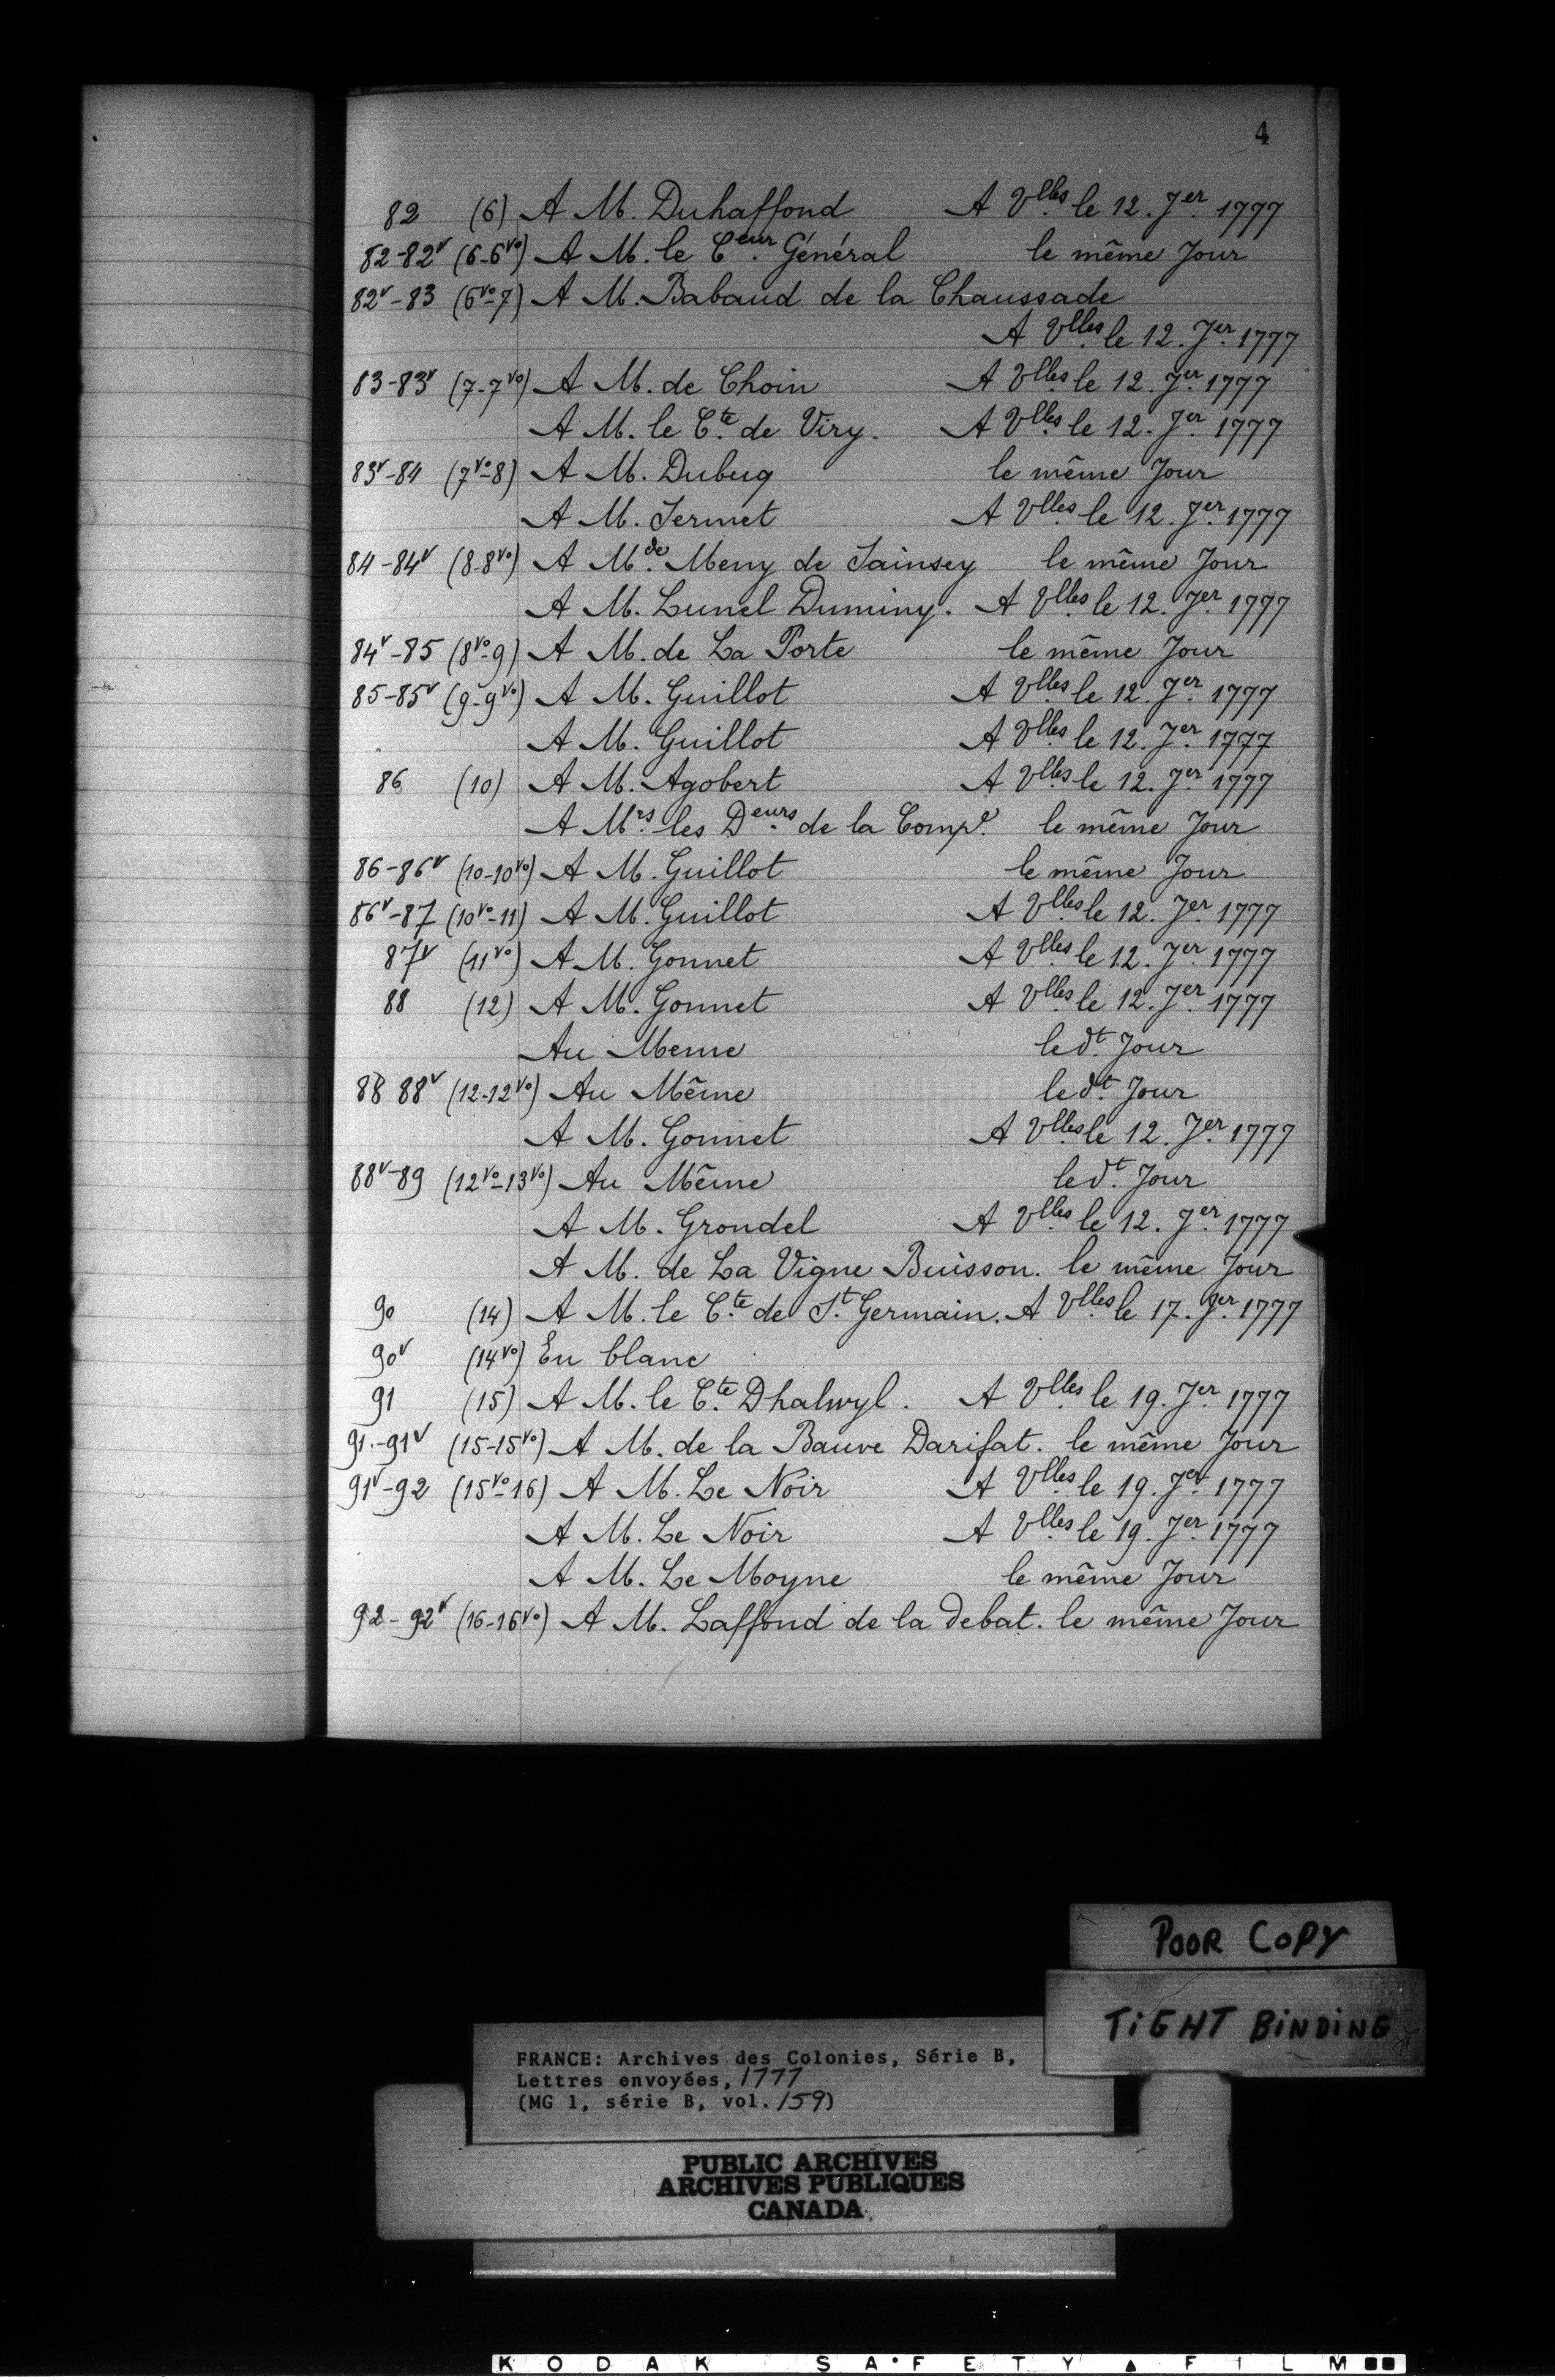 4
82 (6) A M. Duhaffond A Vlles le 12. Jer 1777
82-82v (6-6vo) A M. le Ceur Général le même Jour
82v-83 (6vo-7) A M. Babaud de la Chaussade
A Vlles le 12. Jer 1777
83-83v (7-7vo) A M. de Choin A Vlles le 12. Jer 1777
A M. le Cte de Viry. A Vlles le 12. Jer 1777
83v-84 (7vo-8) A M. Dubuq le même Jour
A M. Sermet A Vlles le 12. Jer 1777
84-84v (8-8vo) A Mde Meny de Sainsey le même Jour
A M. Lunel Duminy. A Vlles le 12. Jer 1777
84v-85 (8vo-9) A M. de La Porte le même Jour
85-85v (9-9vo) A M. Guillot A Vlles le 12. Jer 1777
A M. Guillot A Vlles le 12. Jer 1777
86 (10) A M. Agobert A Vlles le 12. Jer 1777
A Mrs les Deurs de la Compe. le même Jour
86-86v (10-10vo) A M. Guillot le même Jour
86v-87 (10vo-11) A M. Guillot A Vlles le 12. Jer 1777
87v (11vo) A M. Gonnet A Vlles le 12. Jer 1777
88 (12) A M. Gonnet A Vlles le 12. Jer 1777
Au Meme le dt. Jour
88 88v (12-12vo) Au Même le dt. Jour
A M. Gonnet A Vlles le 12. Jer 1777
88v-89 (12vo-13vo) Au Même le dt. Jour
A M. Grondel A Vlles le 12. Jer 1777
A M. de La Vigne Buisson. le même Jour
90 (14) A M. le Cte de St Germain. A Vlles le 17. Jer 1777
90v (14vo) En blanc
91 (15) A M. le Cte Dhalwyl. A Vlles le 19. Jer 1777
91.-91v (15-15vo) A M. de la Bauve Darifat. le même Jour
91v-92 (15vo-16) A M. Le Noir A Vlles le 19. Jer 1777
A M. Le Noir A Vlles le 19. Jer 1777
A M. Le Moyne le même Jour
92-92v (16-16vo) A M. Laffond de la debat. le même Jour
POOR COPY
TIGHT BINDING
FRANCE: Archives des Colonies, Série B,
Lettres envoyées, 1777
(MG 1, série B, vol. 159)
PUBLIC ARCHIVES
ARCHIVES PUBLIQUES
CANADA
KODAK SAFETY FILM